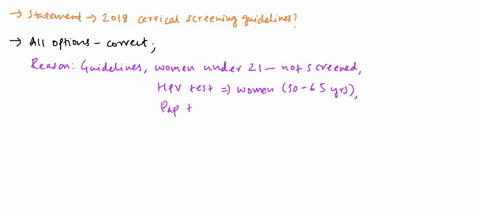 → Statement → 2018 cervical screening guidelines?
→ All options - correct;
Reason: Guidelines, women under 21 - not screened,
HPV test => women (30-65 yrs),
Pap t